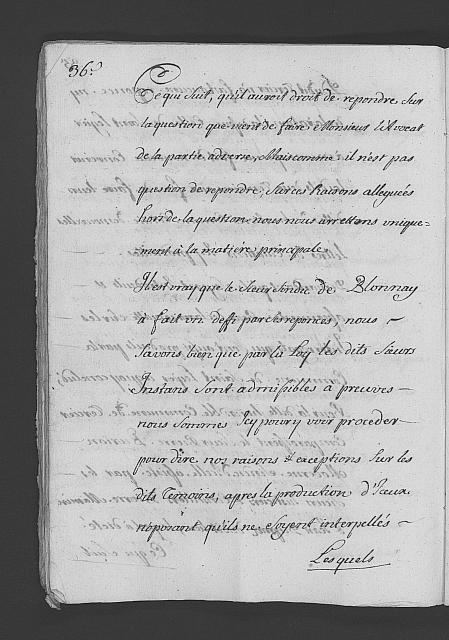 36.
Ce qui suit, qu'il auroit droit de repondre sur
la question que vient de faire Monsieur l'Avocat
de la partie adverse, Mais comme il n'est pas
question de repondre, sur ces Raisons alleguées
hors de la question nous nous arrettons unique-
ment à la matiere principale.
Il est vray que le sieur de Blonnay
à fait un deffi par ces reponces, nous
Savons bien que par la Loy les dits Sieurs
Instans sont admissibles à preuves
nous sommes Icy pour y voir proceder
pour dire nos raisons & exceptions sur les
dits Temoins, apres la production d'Iceux
n'oposant qu'ils ne soyent interpellés
Lesquels